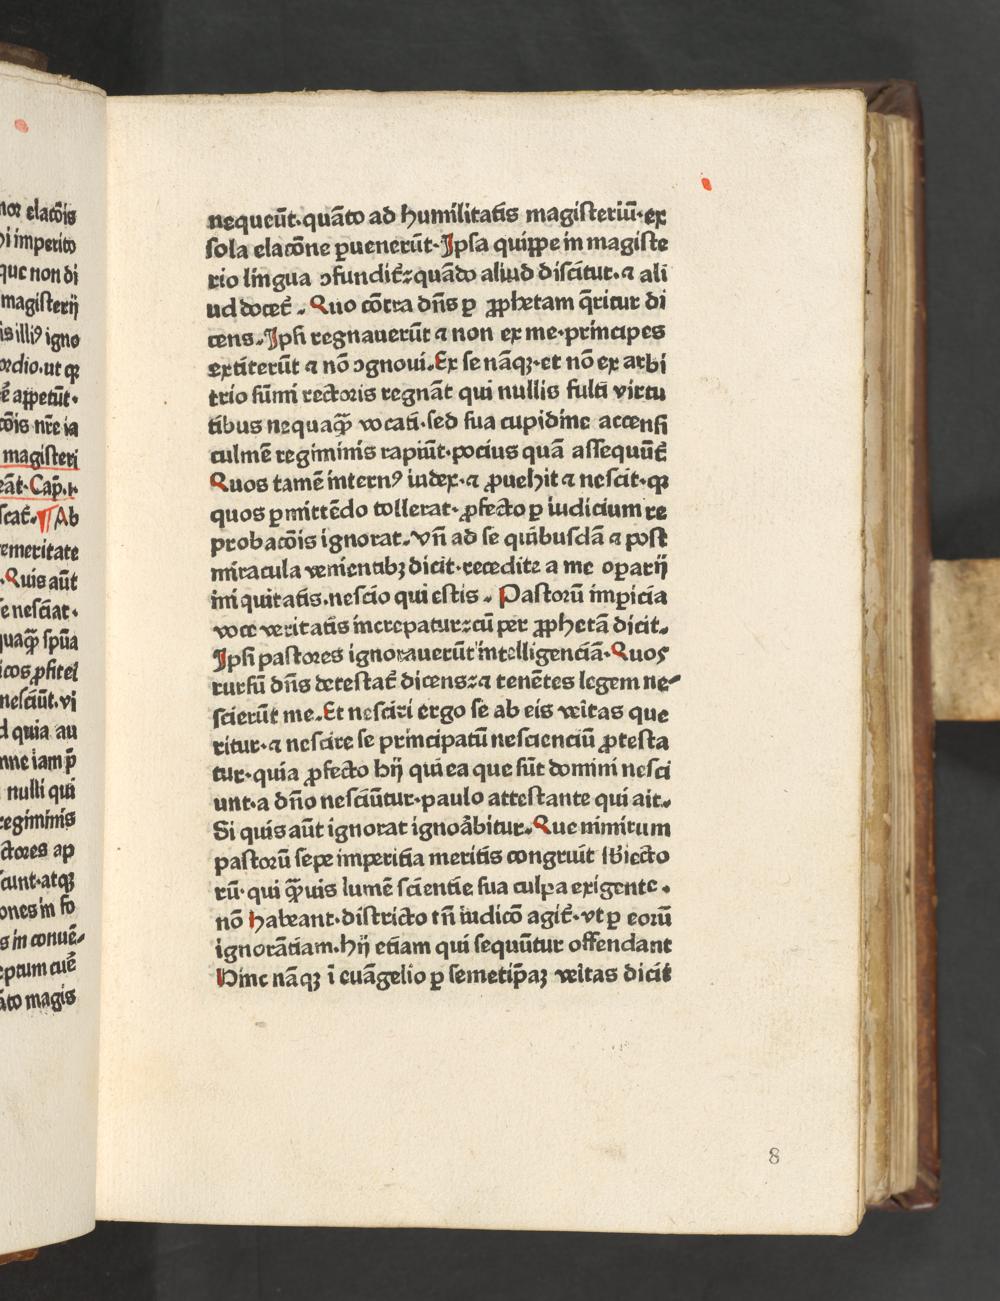 noꝛ elatōis
hi imperito
que non di
magisterij
is illiꝰ igno
oꝛdio.ut qꝫ
ē appetūt·
tōis nr̄e ia
magisteri
eāt·Cap̄.i·
scat̄.¶Ab
temeritate
·Quis aūt
se nesciat·
quaqꝫ̄ spūa
icos ꝓfitei
nesciūt.vi
d quia au
nne iam p̄
nulli qui
regiminis
ctoꝛes ap
scunt·atqꝫ
ones in fo
s in conuē⸗
eptum cuē
āto magis
nequeūt·quāto ad humilitatis magisteriū·ex
sola elacōne ꝑuenerūt·Ipsa quippe in magiste
rio lingua ꝯfundit̄:quādo aliud discitur·⁊ ali
ud docet̄ . Quo cōtra dn̄s ꝑ ꝓphetam q̄ritur di
cens.Ipsi regnauerūt ⁊ non ex me·principes
extiterūt ⁊ nō ꝯgnoui.Ex se nāqꝫ·et nō ex arbi
trio sūmi rectoris regnāt qui nullis fulti virtu
tibus nequaqꝫ̄ vocati·sed sua cupidine accensi
culmē regiminis rapiūt·pocius quā assequūt̄
Quos tamē internꝰ iudex·⁊ ꝓuehit ⁊ nescit·qꝫ
quos ꝑmittēdo tollerat·ꝓfecto ꝑ iudicium re
probacōis ignorat.Vn̄ ad se quibusdā ⁊ post
miracula venientibꝫ dicit·recedite a me oꝑarij
iniquitatis.nescio qui estis . Pastorū imꝑicia
voce veritatis increpatur:cū per ꝓphetā dicit.
Ipsi pastores ignorauerūt intelligenciā·Quos
rursū dn̄s detestat̄ dicens:⁊ tenētes legem ne⸗
scierūt me.Et nesciri ergo se ab eis vēitas que
ritur·⁊ nescire se principatū nescienciū ꝓtesta
tur·quia ꝓfecto hij qui ea que sūt domini nesci
unt·a dn̄o nesciūtur·paulo attestante qui ait.
Si quis aūt ignorat ignoābitur.Que nimirum
pastorū sepe imperitia meritis congruit sb̄iecto
rū·qui qꝫ̄uis lumē scientie sua culpa exigente .
nō habeant·districto tn̄ iudicō agit̄·vt ꝑ eorū
ignorātiam·hij etiam qui sequūtur offendant
Hinc nāqꝫ ī euāgelio ꝑ semetip̄aꝫ vēitas dicit
8